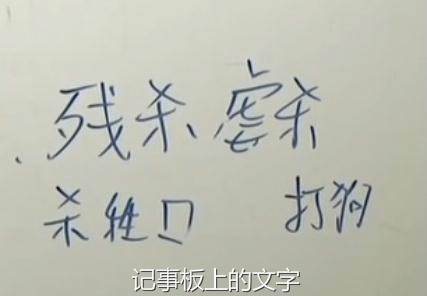 残杀、虐杀
杀牲口 打狗
记事板上的文字